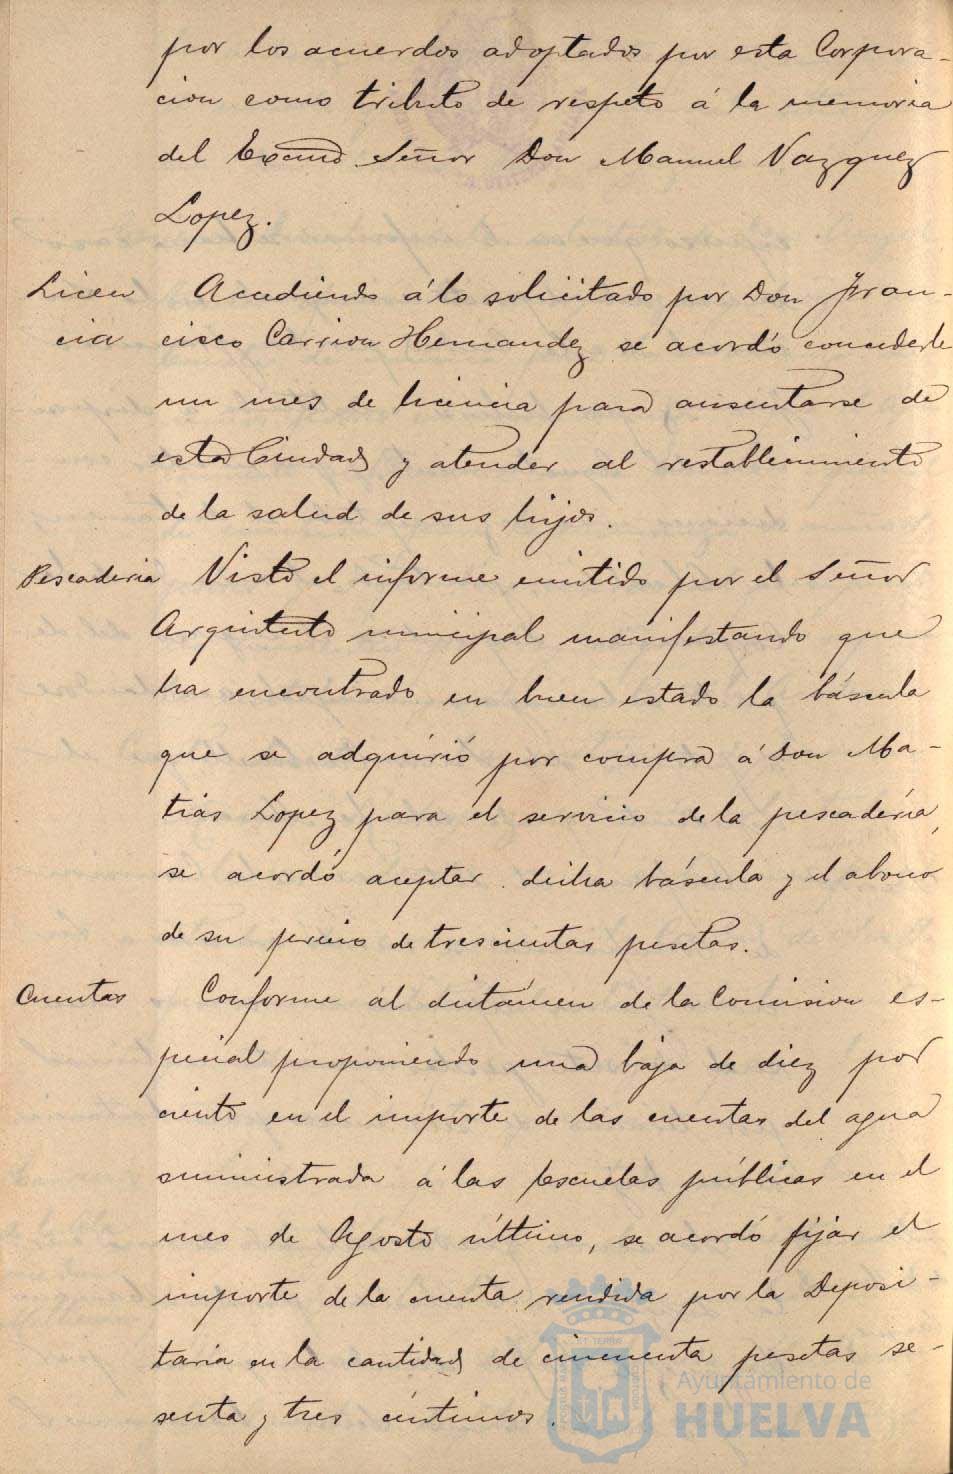 por los acuerdos adoptados por esta Corpora-
cion como tributo de respeto á la memoria
del Excmo Señor Don Manuel Vazquez
Lopez.
Licen
cia
Accediendo á lo solicitado por Don Fran-
cisco Carrion Hernandez se acordó concederle
un mes de licencia para ausentarse de
esta Ciudad y atender al restablecimiento
de la salud de sus hijos.
Pescaderia
Visto el informe emitido por el Señor
Arquitecto municipal manifestando que
ha encontrado en buen estado la báscula
que se adquirió por compra á Don Ma-
tias Lopez para el servicio de la pescadería,
se acordó aceptar dicha báscula y el abono
de su precio de trescientas pesetas.
Cuentas
Conforme al dictámen de la Comision es-
pecial proponiendo una baja de diez por
ciento en el importe de las cuentas del agua
suministrada á las Escuelas públicas en el
mes de Agosto último, se acordó fijar el
importe de la cuenta rendida por la Deposi-
taria en la cantidad de cincuenta pesetas se-
senta y tres céntimos.
Ayuntamiento de
HUELVA